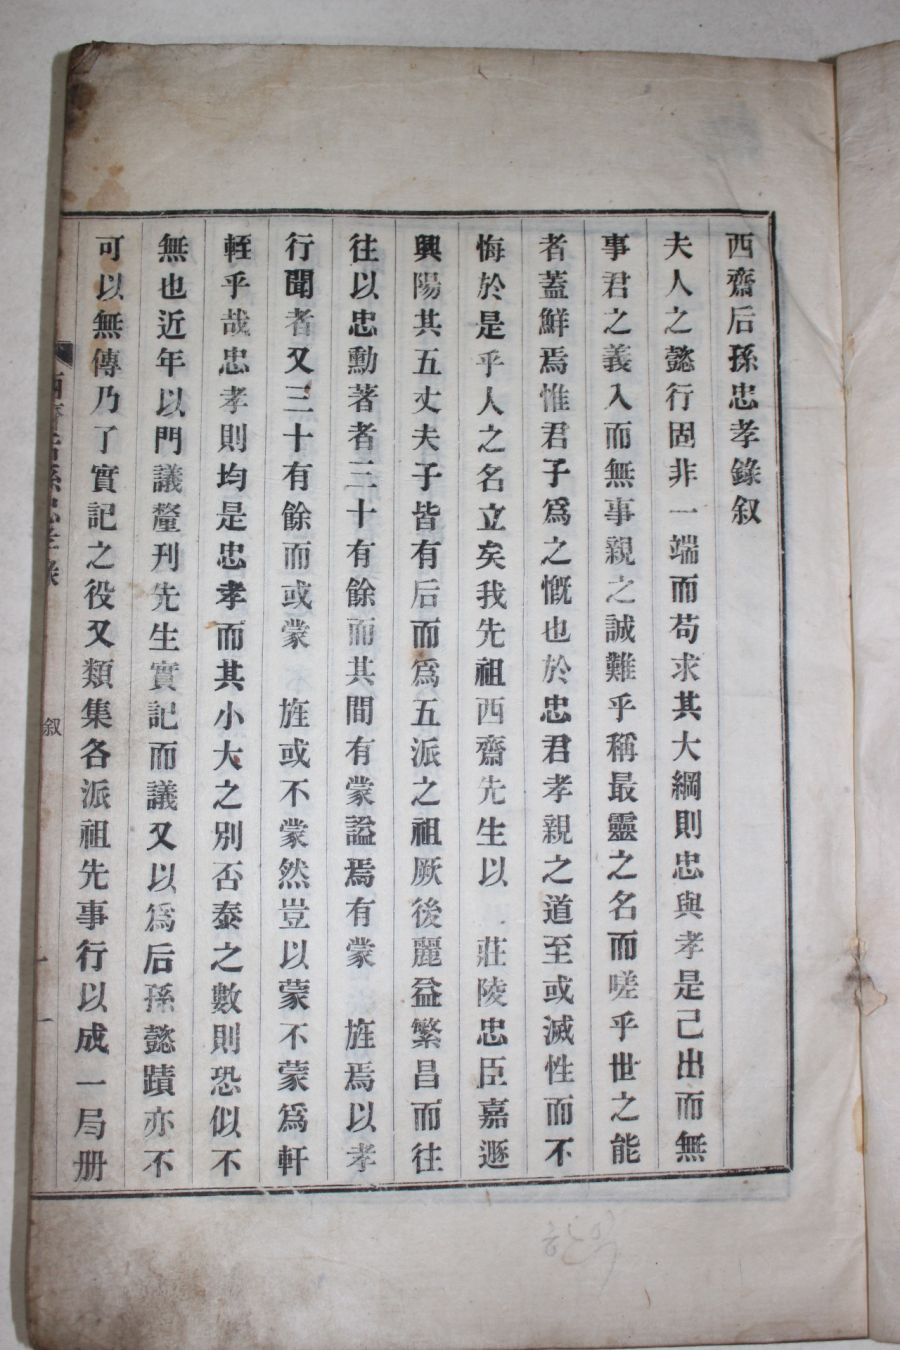 西齋后孫忠孝錄叙
夫人之懿行固非一端而苟求其大綱則忠與孝是已出而無
事君之義入而無事親之誠難乎稱最靈之名而嗟乎世之能
者蓋鮮焉惟君子爲之慨也於忠君孝親之道至或滅性而不
悔於是乎人之名立矣我先祖西齋先生以 莊陵忠臣嘉遯
興陽其五丈夫子皆有后而爲五派之祖厥後麗益繁昌而往
往以忠勳著者三十有餘而其間有蒙謚焉有蒙 旌焉以孝
行聞者又三十有餘而或蒙 旌或不蒙然豈以蒙不蒙爲軒
輊乎哉忠孝則均是忠孝而其小大之別否泰之數則恐似不
無也近年以門議釐刊先生實記而議又以爲后孫懿蹟亦不
可以無傳乃了實記之役又類集各派祖先事行以成一局册
西齋后孫忠孝錄
叙
一